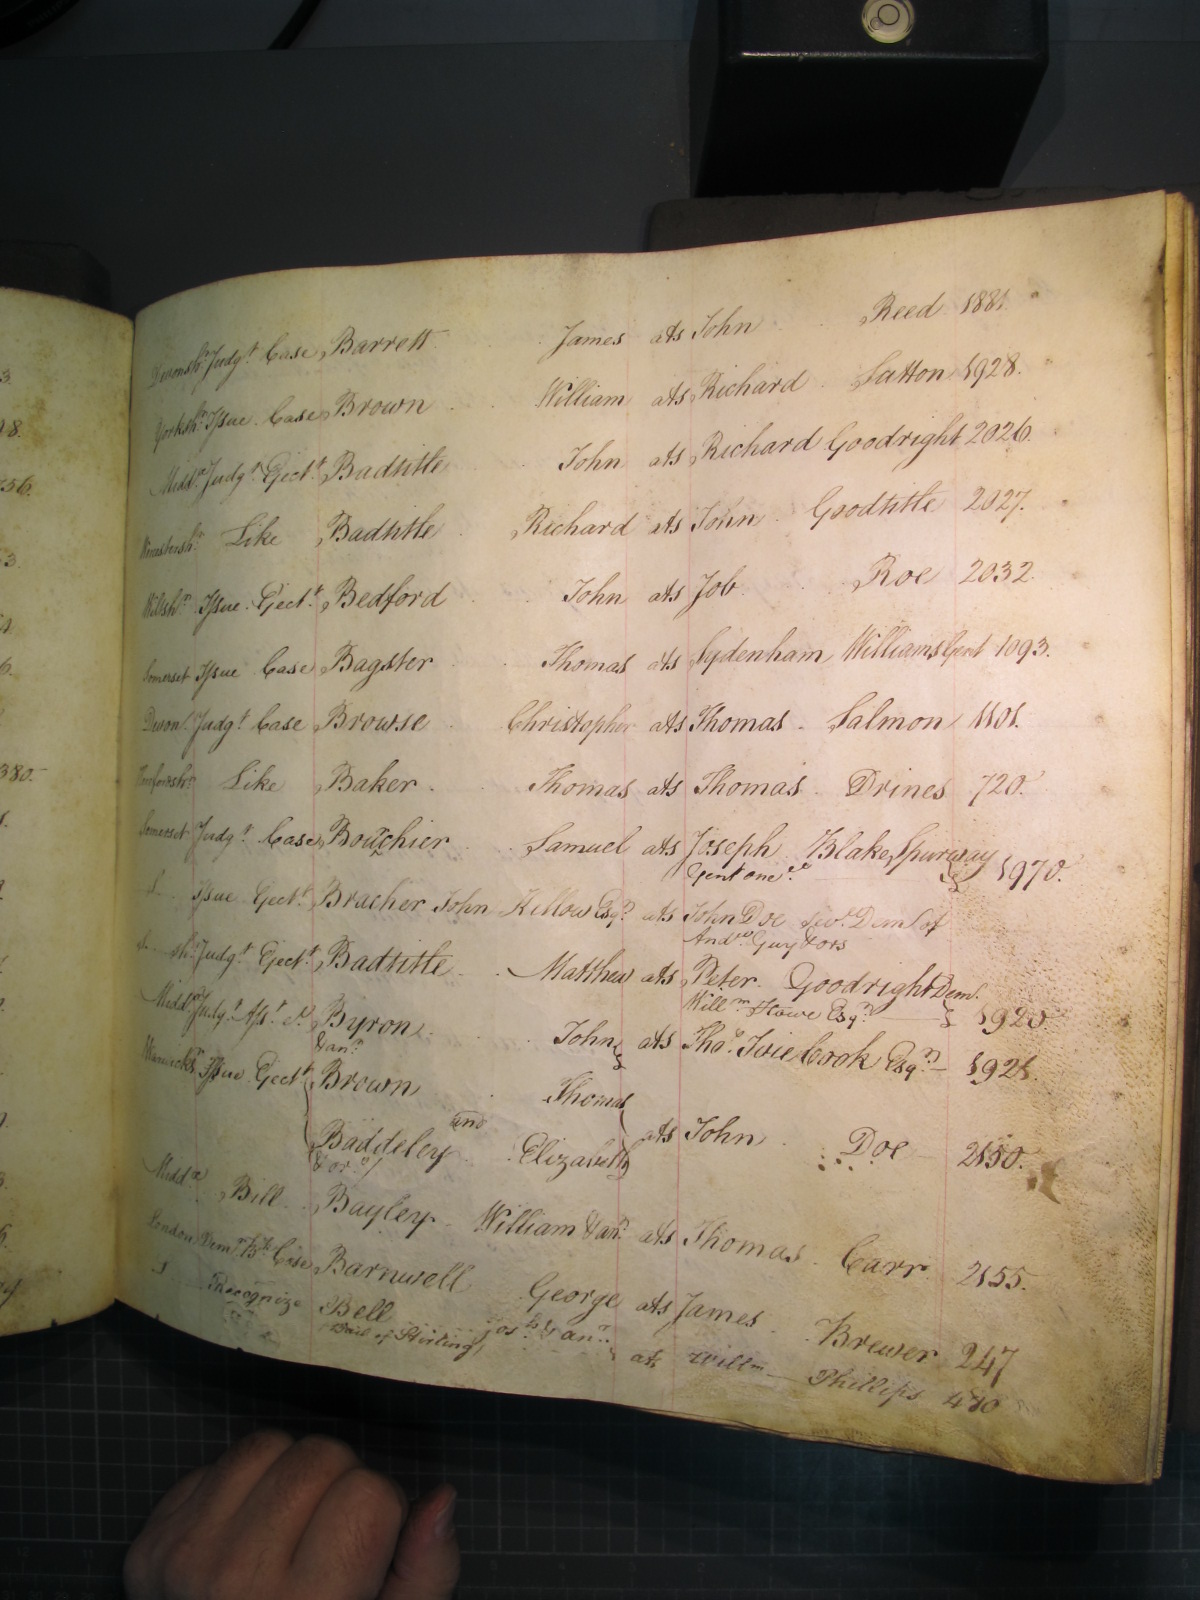 Devonsh.r Judg.t Case Barrett James ats John Reed 1881.
Yorksh.r Issue Case Brown William ats Richard Sutton 1928.
Midd.x Judg.t Eject.t Badtitle John ats Richard Goodright 2026.
Worcestersh.r Like Badtitle Richard ats John Goodtitle 2027.
Wiltsh.r Issue Eject.t Bedford John ats Job Roe 2032
Somerset Issue Case Bagster Thomas ats Sydenham Williams Gent 1093.
Devon Judg.t Case Browse Christopher ats Thomas Salmon 1101.
Like Baker Thomas ats Thomas Drines 720.
Somerset Judg.t Case Boutchier Samuel ats Joseph Blake Spurway
Gent one &c 1970.
Issue Eject.t Bracher John Hillow Esq.r ats John Doe sev.l Dem.s of
And.w Guy & ors
Judg.t Eject.t Badtitle Matthew ats Peter Goodright Dem.
Will.m Howe Esq.r 1920
Midd.x Judg.t Byron John ats Tho.s Cook Esq.r 1921.
& an.r
Warwicks.r Issue Eject.t Brown Thomas
and ats John Doe 2150.
Baddeley Elizabeth
& or.s
Midd.x Bill Bayley William & an.r ats Thomas Carr 2155.
London Dem.r Case Barnwell George ats James Brewer 247
Recognize Bell Jos.h & an.r ats Will.m Phillips 470
Bail of Stirling
380.